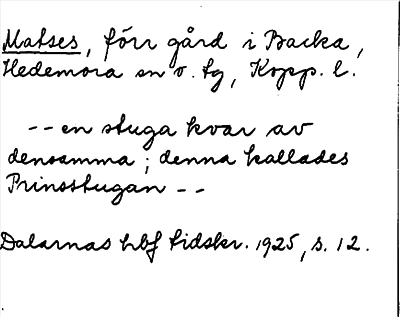 Matses, förr gård i Backa,
Hedemora sn o. tg, Kopp. l.
-- en stuga kvar av
densamma ; denna kallades
Prinsstugan --
Dalarnas hbf tidskr. 1925, s. 12.